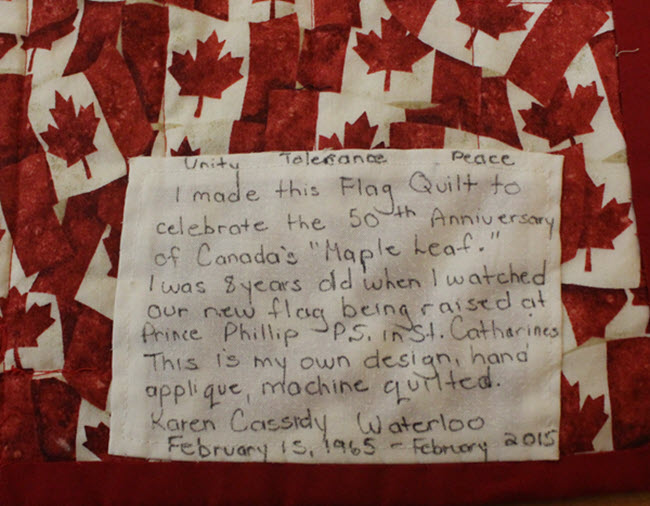 Unity Tolerance Peace
I made this Flag Quilt to
celebrate the 50th Anniversary
of Canada's "Maple Leaf."
I was 8 years old when I watched
our new flag being raised at
Prince Phillip P.S. in St. Catharines
This is my own design, hand
applique, machine quilted.
Karen Cassidy Waterloo
February 15, 1965 - February 2015